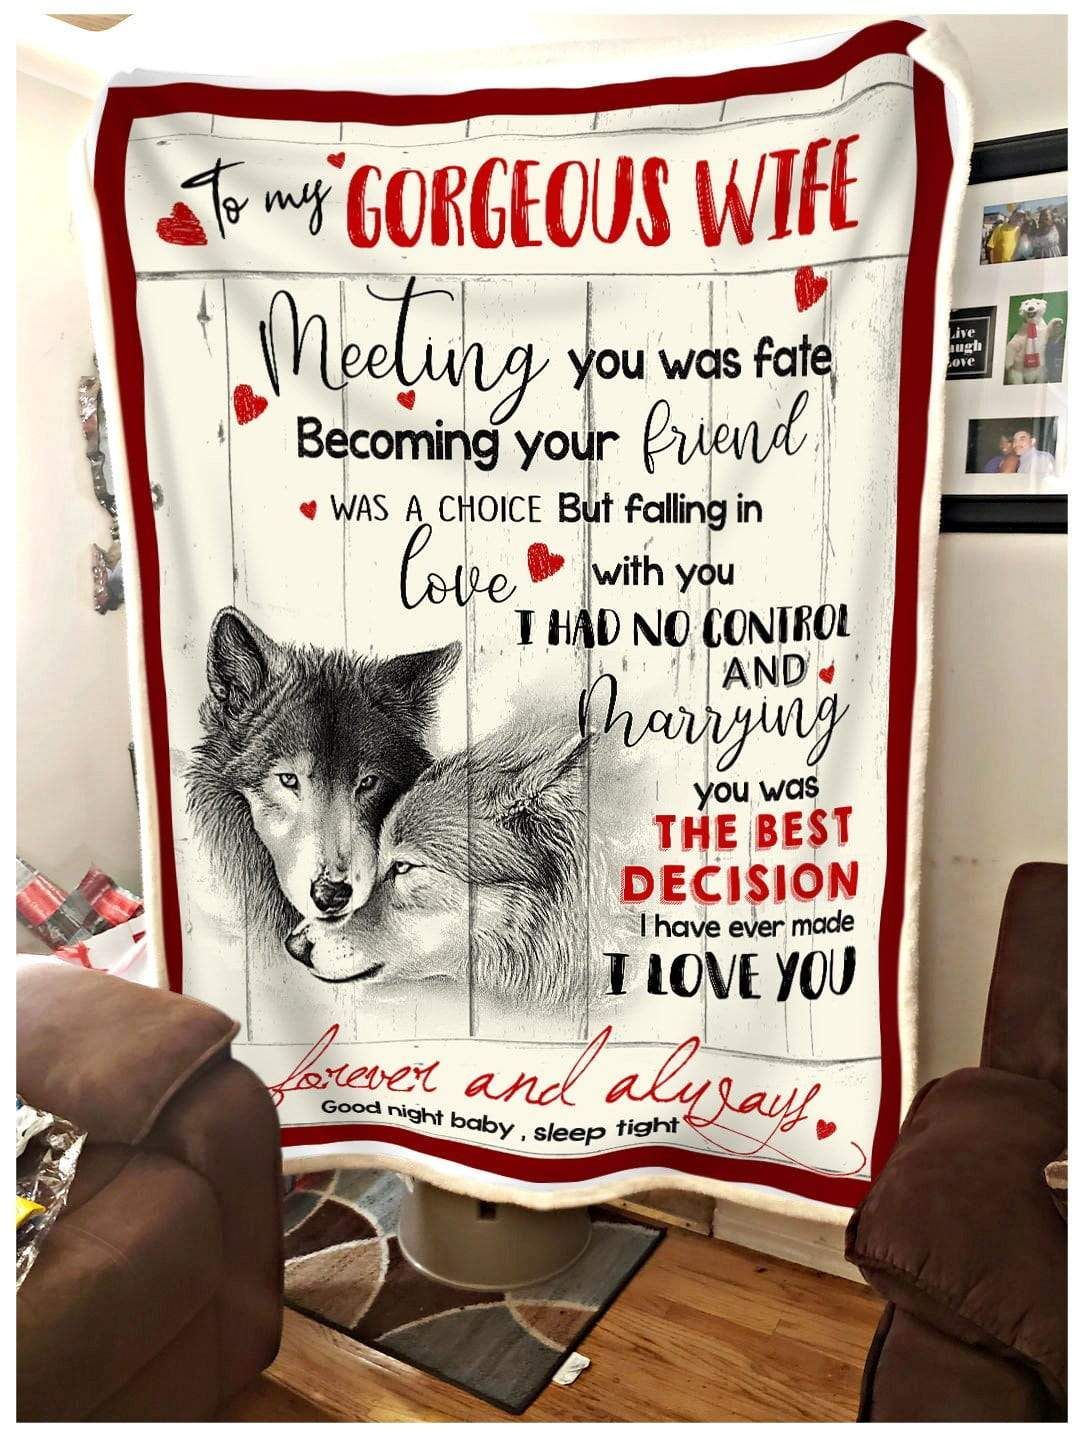 To my GORGEOUS WIFE
Meeting you was fate
Becoming your friend
WAS A CHOICE But falling in
love with you
I HAD NO CONTROL
AND
Marrying
you was
THE BEST
DECISION
I have ever made
I LOVE YOU
forever and always
Good night baby , sleep tight
Live
augh
ove